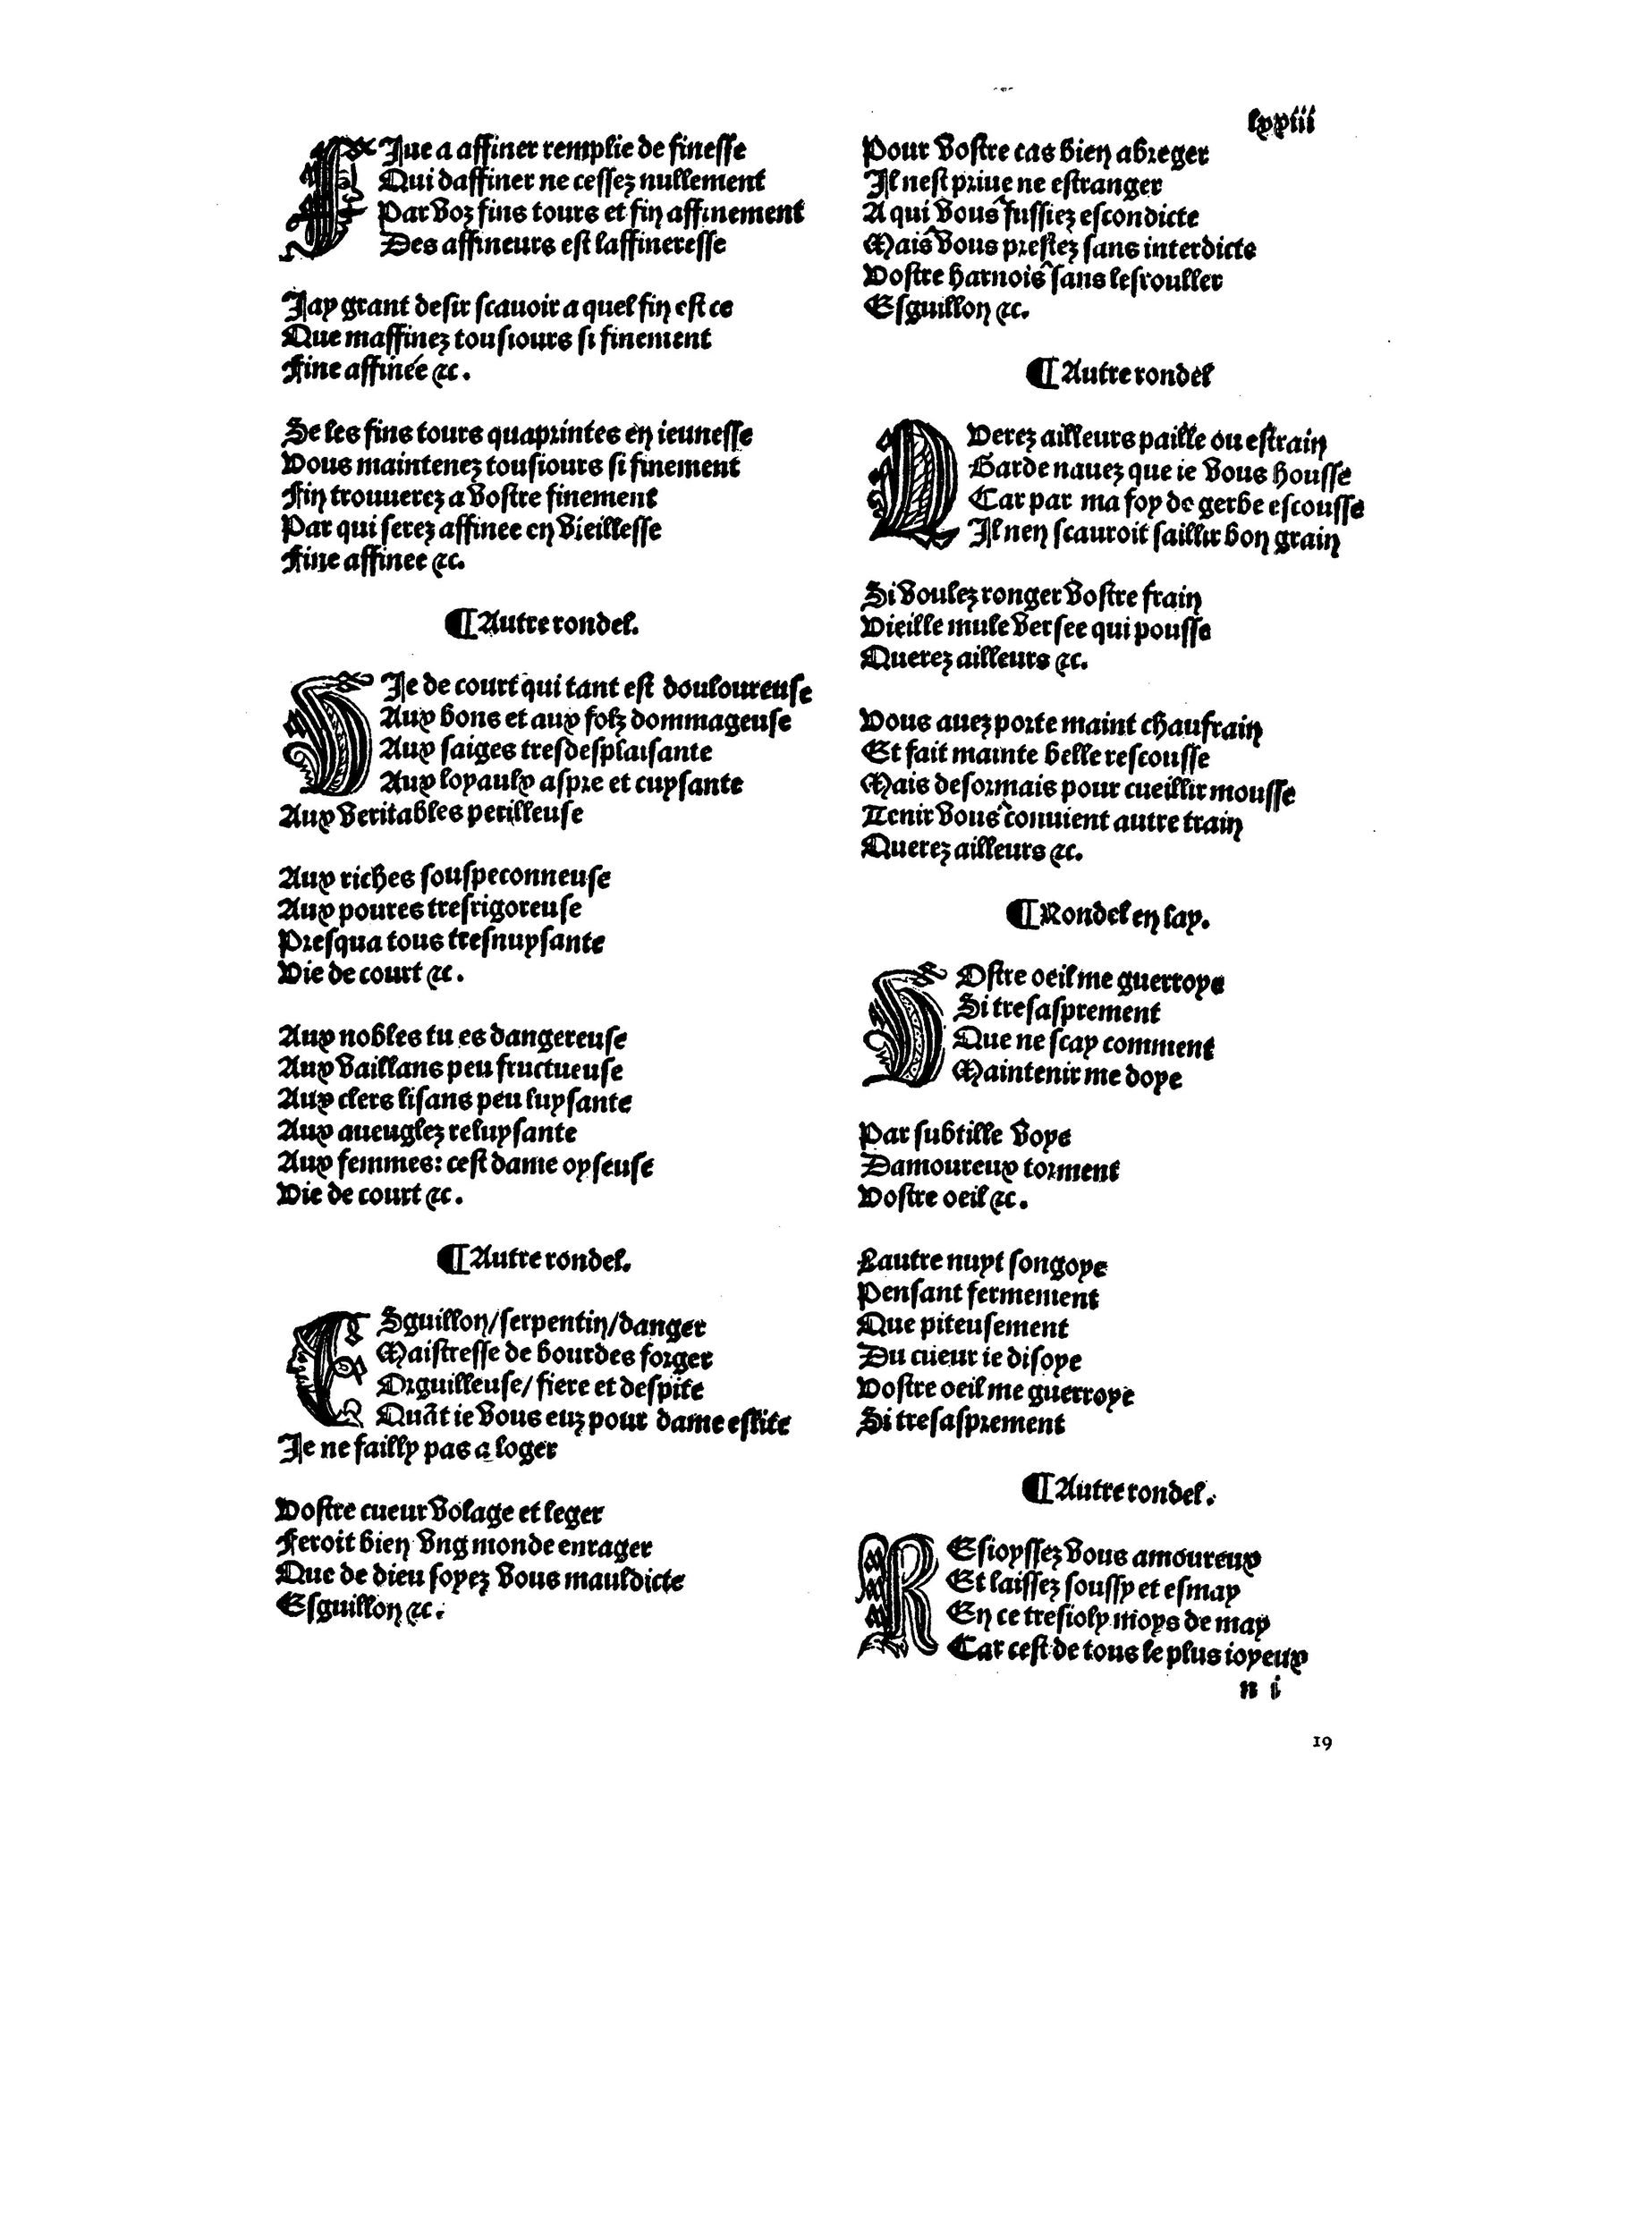 lxxiii
FIne a affiner remplie de finesse
Qui daffiner ne cessez nullement
Par voz fins tours et fin affinement
Des affineurs est laffineresse
Jay grant desir scauoir a quel fin est ce
Que maffinez tousiours si finement
Fine affinée &c.
Se les fins tours quaprintes en ieunesse
Vous maintenez tousiours si finement
Fin trouuerez a vostre finement
Par qui serez affinee en vieillesse
Fine affinee &c.
¶ Autre rondel.
VIe de court qui tant est douloureuse
Aux bons et aux folz dommageuse
Aux saiges tresdesplaisante
Aux loyaulx aspre et cuysante
Aux veritables perilleuse
Aux riches souspeconneuse
Aux poures tresrigoreuse
Presqua tous tresnuysante
Vie de court &c.
Aux nobles tu es dangereuse
Aux vaillans peu fructueuse
Aux clers lisans peu luysante
Aux aueuglez reluysante
Aux femmes: cest dame oyseuse
Vie de court &c.
¶ Autre rondel.
ESguillon/serpentin/danger
Maistresse de bourdes forger
Orguilleuse/fiere et despite
Quāt ie vous euz pour dame eslite
Je ne failly pas a loger
Vostre cueur volage et leger
Feroit bien vng monde enrager
Que de dieu soyez vous mauldicte
Esguillon &c.
Pour vostre cas bien abreger
Il nest priue ne estranger
A qui vous fussiez escondicte
Mais vous prestez sans interdicte
Vostre harnois sans lesrouller
Esguillon &c.
¶ Autre rondel
QVerez ailleurs paille ou estrain
Garde nauez que ie vous housse
Car par ma foy de gerbe escousse
Il nen scauroit saillir bon grain
Si voulez ronger vostre frain
Vieille mule versee qui pousse
Querez ailleurs &c.
Vous auez porte maint chaufrain
Et fait mainte belle rescousse
Mais desormais pour cueillir mousse
Tenir vous conuient autre train
Querez ailleurs &c.
¶ Rondel en lay.
VOstre oeil me guerroye
Si tresasprement
Que ne scay comment
Maintenir me doye
Par subtille voye
Damoureux torment
Vostre oeil &c.
Lautre nuyt songoye
Pensant fermement
Que piteusement
Du cueur ie disoye
Vostre oeil me guerroye
Si tresasprement
¶ Autre rondel.
REsioyssez vous amoureux
Et laissez soussy et esmay
En ce tresioly moys de may
Car cest de tous le plus ioyeux
n i
19